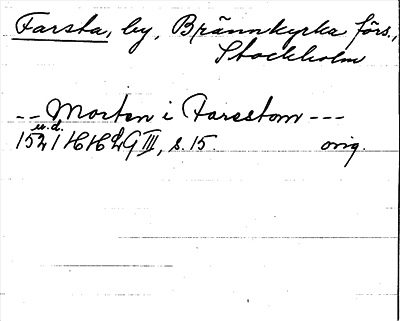 Farsta, by, Brännkyrka förs.,
Stockholm
-- Morten i Farestom ---
u.d.
1521 HH G III, s. 15. orig.